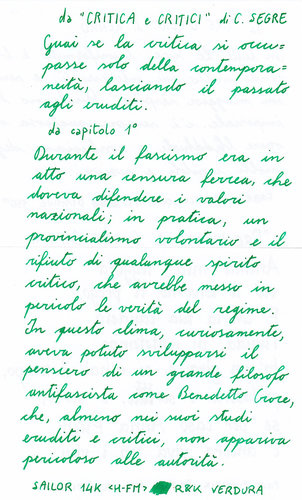 da "CRITICA e CRITICI" di C. SEGRE
Guai se la critica si occu=
passe solo della contempora=
neità, lasciando il passato
agli eruditi.
da capitolo 1°
Durante il fascismo era in
atto una censura ferrea, che
doveva difendere i valori
nazionali; in pratica, un
provincialismo volontario e il
rifiuto di qualunque spirito
critico, che avrebbe messo in
pericolo le verità del regime.
In questo clima, curiosamente,
aveva potuto svilupparsi il
pensiero di un grande filosofo
antifascista come Benedetto Croce,
che, almeno nei suoi studi
eruditi e critici, non appariva
pericoloso alle autorità.
SAILOR 14K <H-FM> R&K VERDURA